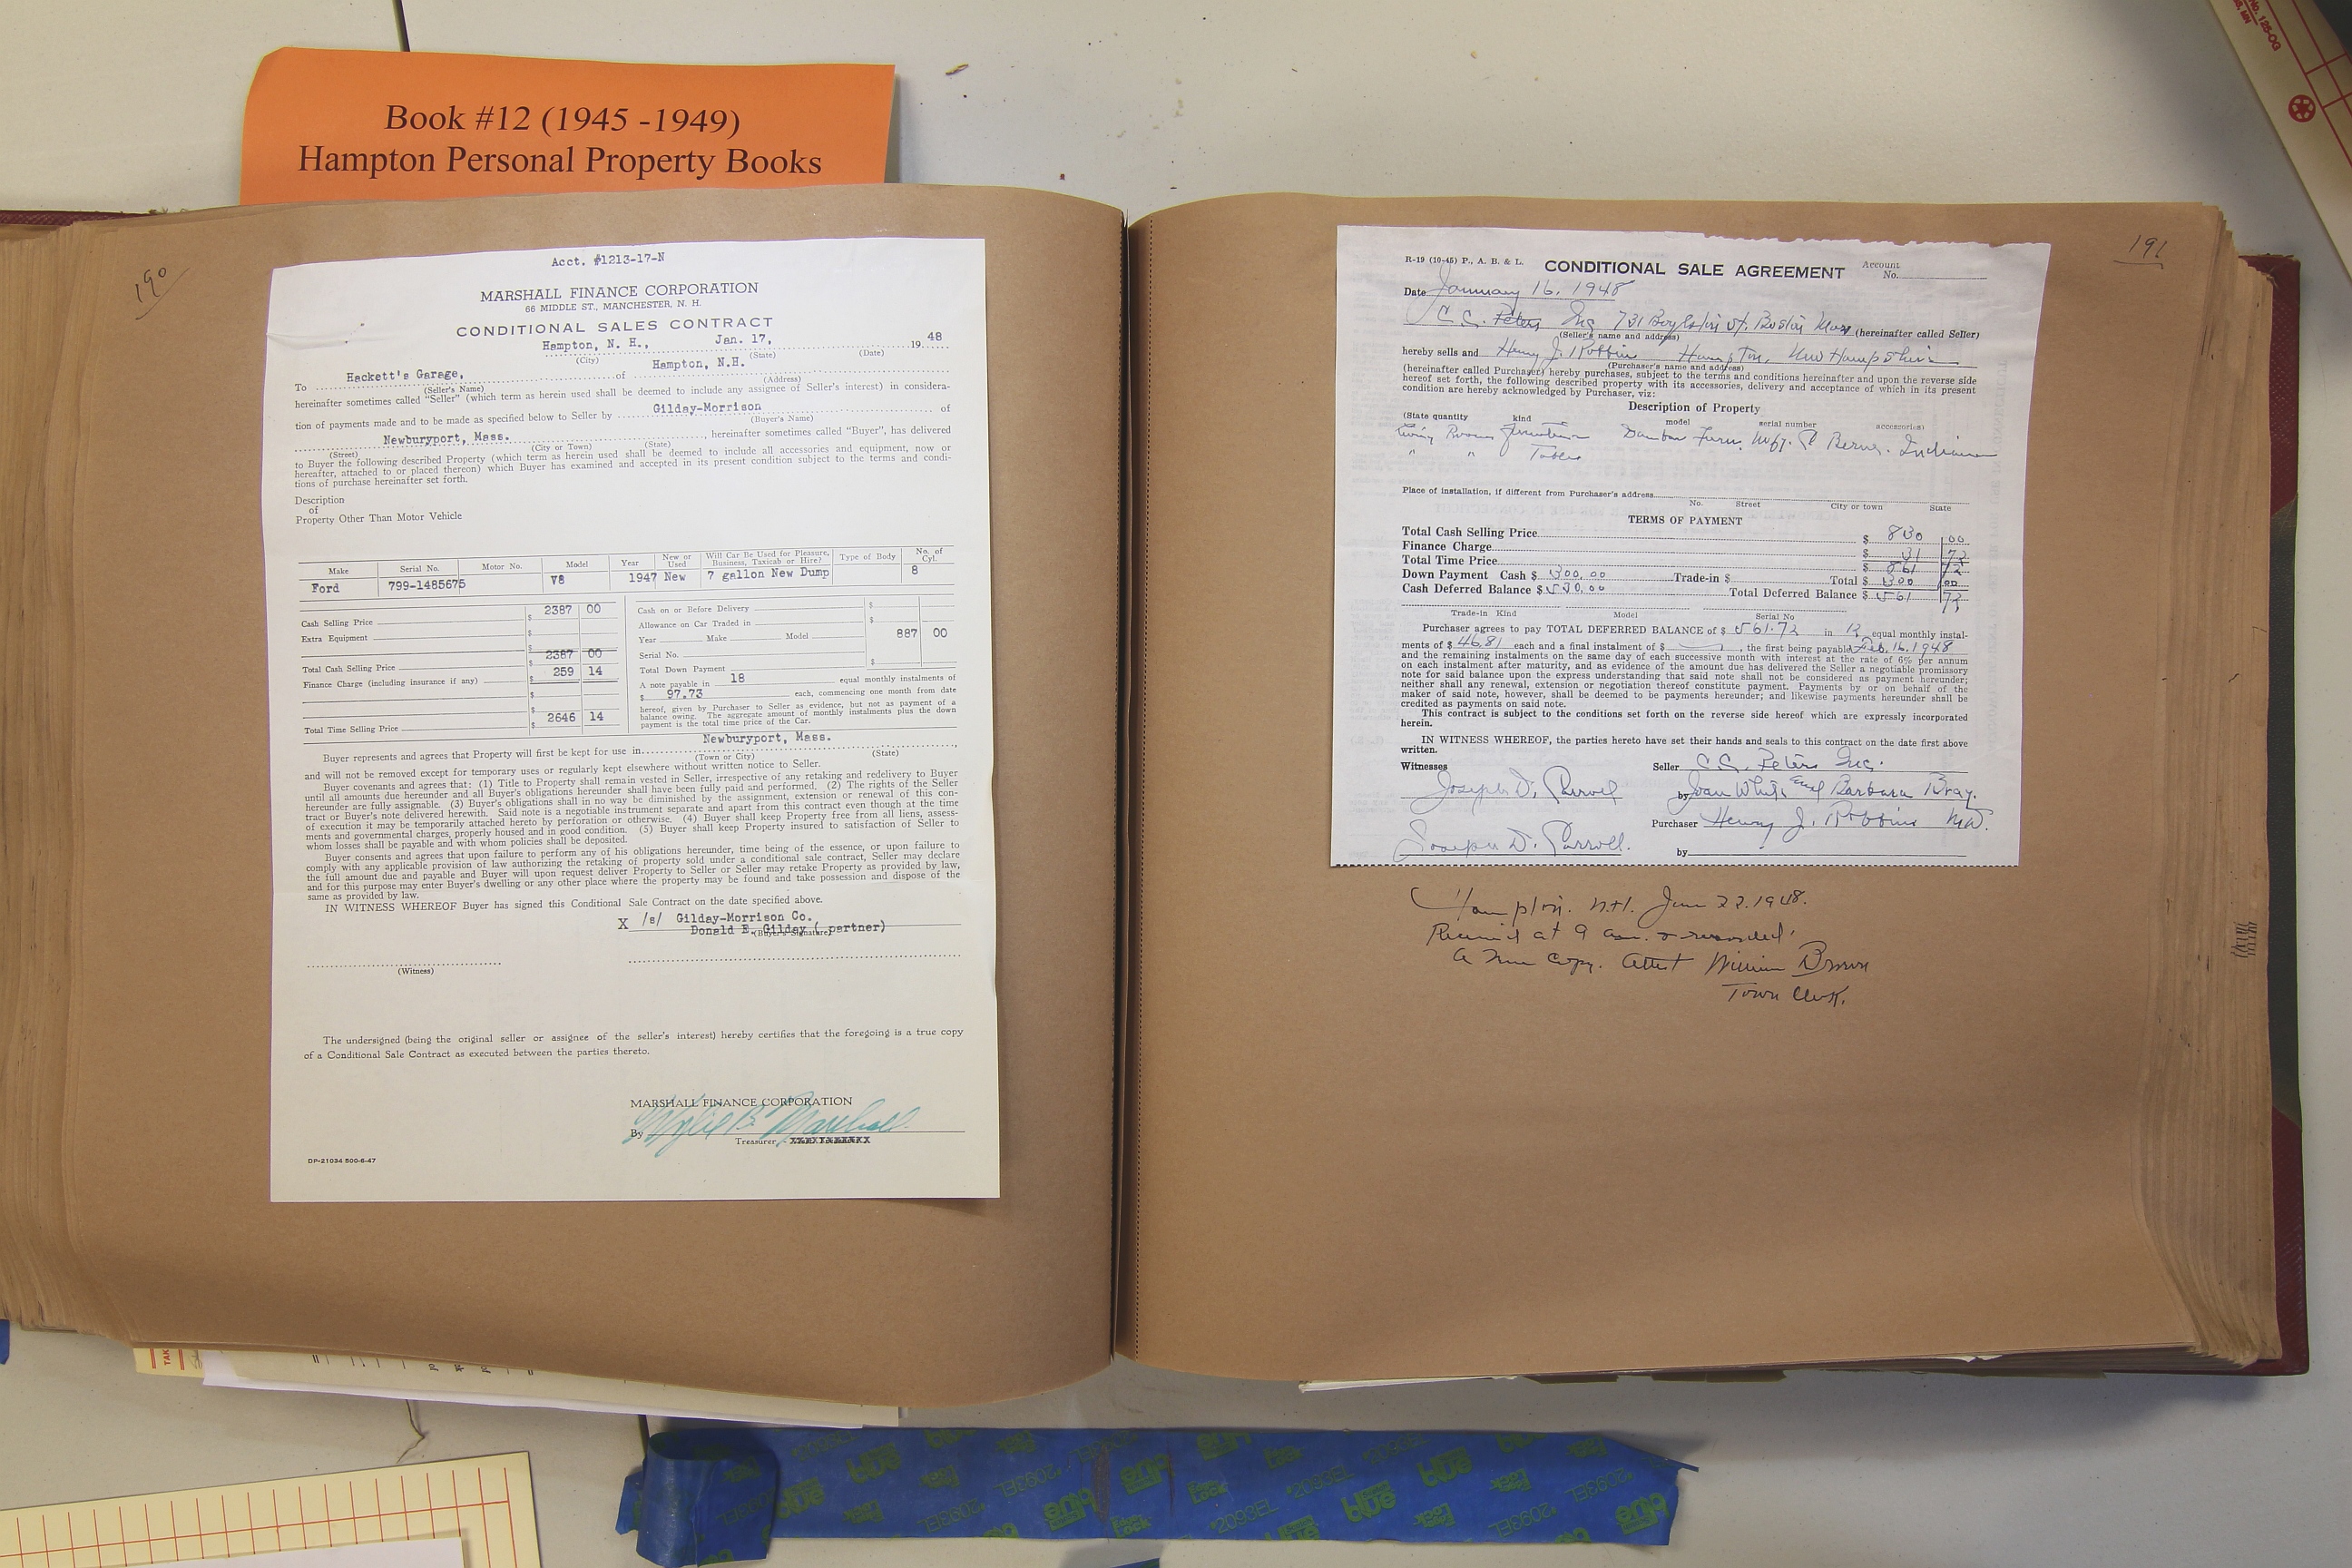 Book #12 (1945 -1949)
Hampton Personal Property Books
190
Acct. #1213-17-N
MARSHALL FINANCE CORPORATION
66 MIDDLE ST., MANCHESTER, N. H.
CONDITIONAL SALES CONTRACT
Hampton, N. H., Jan. 17, 19 48
(City) (State) (Date)
To Hackett's Garage, of Hampton, N.H.
(Seller's Name) (Address)
hereinafter sometimes called "Seller" (which term as herein used shall be deemed to include any assignee of Seller's interest) in considera-
tion of payments made and to be made as specified below to Seller by Gilday-Morrison of
(Buyer's Name)
Newburyport, Mass. , hereinafter sometimes called "Buyer", has delivered
(Street) (City or Town) (State)
to Buyer the following described Property (which term as herein used shall be deemed to include all accessories and equipment, now or
hereafter, attached to or placed thereon) which Buyer has examined and accepted in its present condition subject to the terms and condi-
tions of purchase hereinafter set forth.
Description
of
Property Other Than Motor Vehicle
Make Serial No. Motor No. Model Year New or Used Will Car Be Used for Pleasure, Business, Taxicab or Hire? Type of Body No. of Cyl.
Ford 799-1485675 V8 1947 New 7 gallon New Dump 8
Cash Selling Price $ 2387 00
Extra Equipment $
Total Cash Selling Price $ 2387 00
Finance Charge (including insurance if any) $ 259 14
$
Total Time Selling Price $ 2646 14
Cash on or Before Delivery $
Allowance on Car Traded in $
Year Make Model 887 00
Serial No.
Total Down Payment $
A note payable in 18 equal monthly instalments of
$ 97.73 each, commencing one month from date
hereof, given by Purchaser to Seller as evidence, but not as payment of a
balance owing. The aggregate amount of monthly instalments plus the down
payment is the total time price of the Car.
Buyer represents and agrees that Property will first be kept for use in Newburyport, Mass. ,
(Town or City) (State)
and will not be removed except for temporary uses or regularly kept elsewhere without written notice to Seller.
Buyer covenants and agrees that: (1) Title to Property shall remain vested in Seller, irrespective of any retaking and redelivery to Buyer
until all amounts due hereunder and all Buyer's obligations hereunder shall have been fully paid and performed. (2) The rights of the Seller
hereunder are fully assignable. (3) Buyer's obligations shall in no way be diminished by the assignment, extension or renewal of this con-
tract or Buyer's note delivered herewith. Said note is a negotiable instrument separate and apart from this contract even though at the time
of execution it may be temporarily attached hereto by perforation or otherwise. (4) Buyer shall keep Property free from all liens, assess-
ments and governmental charges, properly housed and in good condition. (5) Buyer shall keep Property insured to satisfaction of Seller to
whom losses shall be payable and with whom policies shall be deposited.
Buyer consents and agrees that upon failure to perform any of his obligations hereunder, time being of the essence, or upon failure to
comply with any applicable provision of law authorizing the retaking of property sold under a conditional sale contract, Seller may declare
the full amount due and payable and Buyer will upon request deliver Property to Seller or Seller may retake Property as provided by law,
and for this purpose may enter Buyer's dwelling or any other place where the property may be found and take possession and dispose of the
same as provided by law.
IN WITNESS WHEREOF Buyer has signed this Conditional Sale Contract on the date specified above.
X /s/ Gilday-Morrison Co.
Donald E. Gilday ( partner)
(Buyer's Signature)
(Witness)
The undersigned (being the original seller or assignee of the seller's interest) hereby certifies that the foregoing is a true copy
of a Conditional Sale Contract as executed between the parties thereto.
MARSHALL FINANCE CORPORATION
By Marshall
Treasurer
DP-21034 500-6-47
191
R-19 (10-45) P., A. B. & L. CONDITIONAL SALE AGREEMENT Account No.
Date January 16, 1948
C. C. Peters Inc 731 Boylston St. Boston Mass (hereinafter called Seller)
(Seller's name and address)
hereby sells and Henry J. Robbins Hampton, New Hampshire
(Purchaser's name and address)
(hereinafter called Purchaser) hereby purchases, subject to the terms and conditions hereinafter and upon the reverse side
hereof set forth, the following described property with its accessories, delivery and acceptance of which in its present
condition are hereby acknowledged by Purchaser, viz:
Description of Property
(State quantity kind model serial number accessories)
Living Room Furniture Dunbar Furn. Mfg. Co Berne, Indiana
" " Tables
Place of installation, if different from Purchaser's address
No. Street City or town State
TERMS OF PAYMENT
Total Cash Selling Price $ 830 00
Finance Charge $ 31 72
Total Time Price $ 861 72
Down Payment Cash $ 300.00 Trade-in $ Total $ 300 00
Cash Deferred Balance $ 530.00 Total Deferred Balance $ 561 72
Trade-in Kind Model Serial No
Purchaser agrees to pay TOTAL DEFERRED BALANCE of $ 561.72 in 12 equal monthly instal-
ments of $ 46.81 each and a final instalment of $ , the first being payable Feb. 16, 1948
and the remaining instalments on the same day of each successive month with interest at the rate of 6% per annum
on each instalment after maturity, and as evidence of the amount due has delivered the Seller a negotiable promissory
note for said balance upon the express understanding that said note shall not be considered as payment hereunder;
neither shall any renewal, extension or negotiation thereof constitute payment. Payments by or on behalf of the
maker of said note, however, shall be deemed to be payments hereunder; and likewise payments hereunder shall be
credited as payments on said note.
This contract is subject to the conditions set forth on the reverse side hereof which are expressly incorporated
herein.
IN WITNESS WHEREOF, the parties hereto have set their hands and seals to this contract on the date first above
written.
Witnesses Seller C. C. Peters Inc.
Joseph D. Parroll by Joan White and Barbara Bray.
Purchaser Henry J. Robbins M.D.
Joseph D. Parroll. by
Hampton. N.H. June 22. 1948.
Received at 9 am. & recorded.
A True Copy. Attest William Brown
Town Clerk.